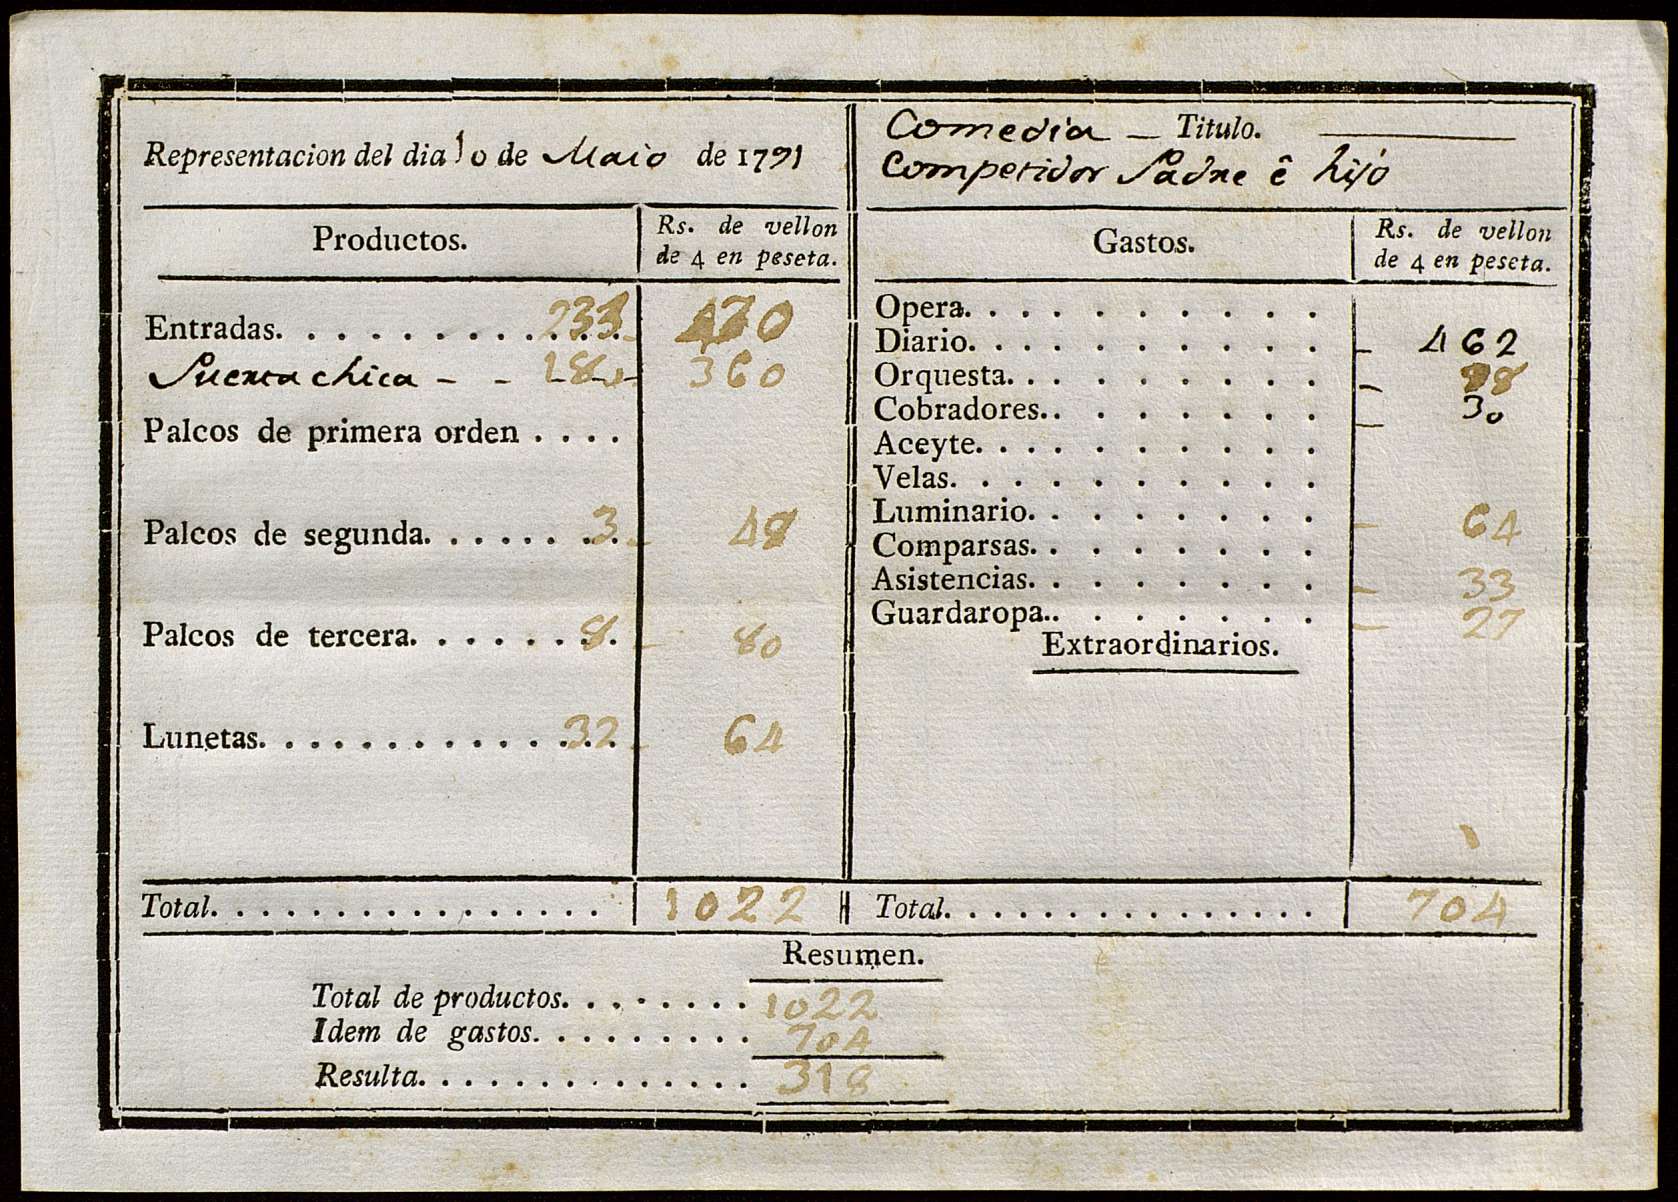 Representacion del dia 10 de Maio de 1791
Comedia — Titulo.
Competidor Padre ê hijo
Productos.
Rs. de vellon
de 4 en peseta.
Entradas. . . . . . . . . . . . . 470
Puerta chica - - 180 360
Palcos de primera orden . . . .
Palcos de segunda. . . . . . . 3 48
Palcos de tercera. . . . . . . 8 80
Lunetas. . . . . . . . . . . . . 32 64
Total. . . . . . . . . . . . . . . . 1022
Gastos.
Rs. de vellon
de 4 en peseta.
Opera. . . . . . . . . . .
Diario. . . . . . . . . . . 462
Orquesta. . . . . . . . . 88
Cobradores. . . . . . . . 30
Aceyte. . . . . . . . . . .
Velas. . . . . . . . . . .
Luminario. . . . . . . . 64
Comparsas. . . . . . . .
Asistencias. . . . . . . . 33
Guardaropa. . . . . . . . 27
Extraordinarios.
Total. . . . . . . . . . . . . . . 704
Resumen.
Total de productos. . . . . . . . 1022
Idem de gastos. . . . . . . . . 704
Resulta. . . . . . . . . . . . . . 318